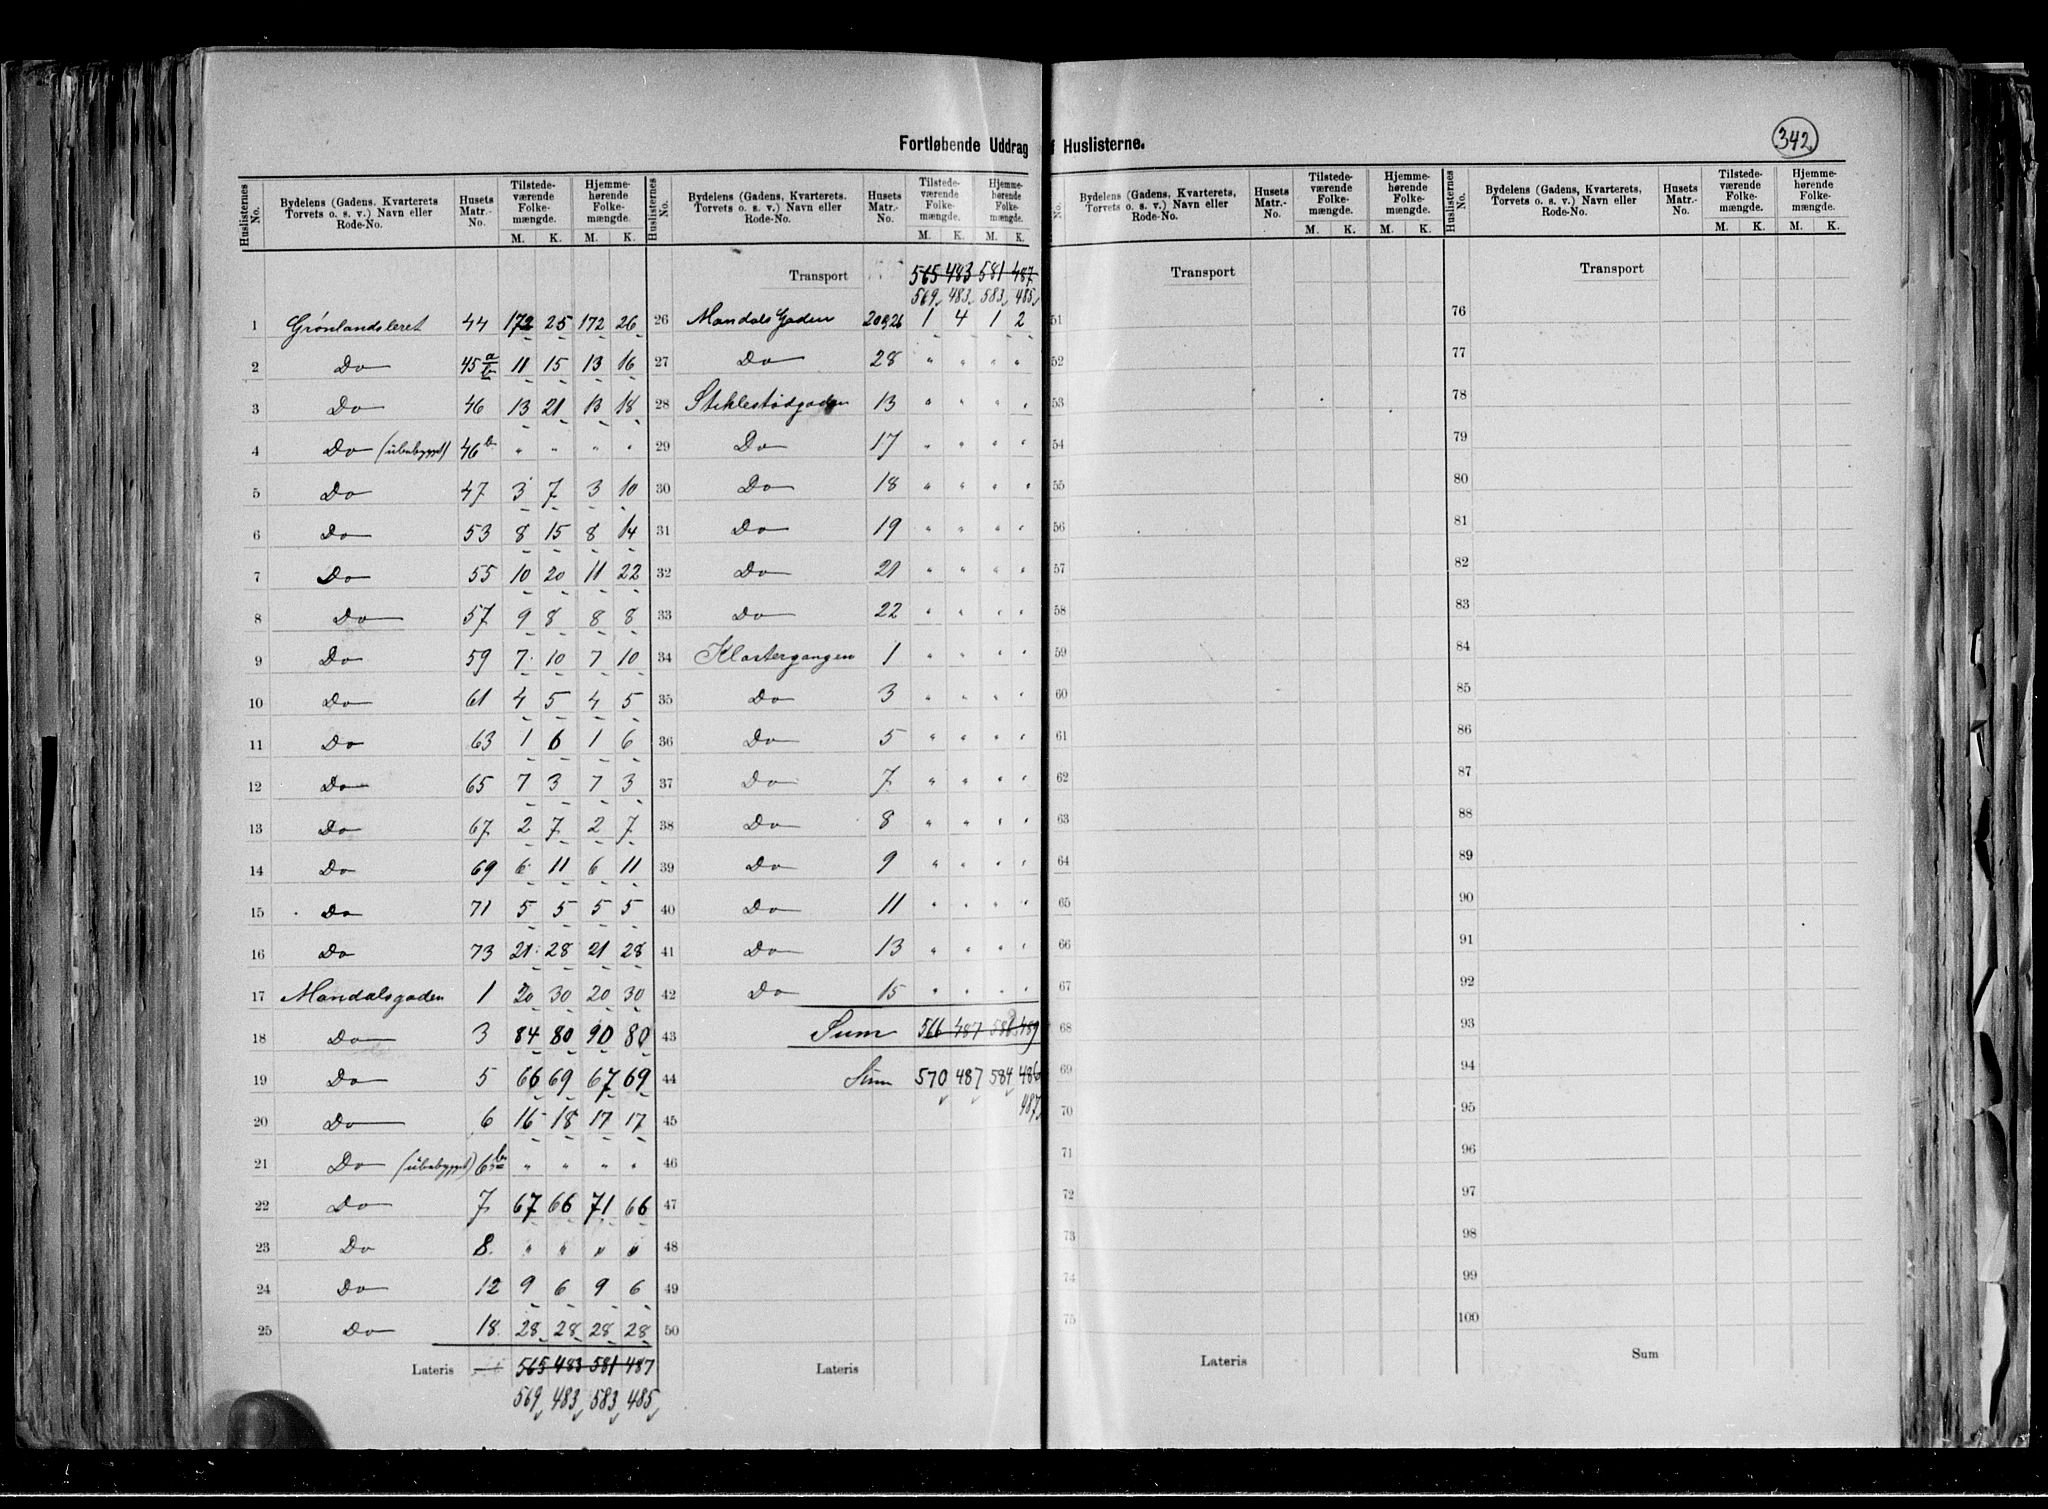 Fortløbende Uddrag f Huslisterne.
342
Huslisternes No. Bydelens (Gadens, Kvarterets, Torvets o. s. v.) Navn eller Rode-No. Husets Matr.-No. Tilstede-værende Folke-mængde. M. K. Hjemme-hørende Folke-mængde. M. K.
1 Grønlandsleret 44 172 25 172 26
2 Do 45 a/b 11 15 13 16
3 Do 46 13 21 13 18
4 Do (ubebygget) 46 b " " " "
5 Do 47 3 7 3 10
6 Do 53 8 15 8 14
7 Do 55 10 20 11 22
8 Do 57 9 8 8 8
9 Do 59 7 10 7 10
10 Do 61 4 5 4 5
11 Do 63 1 6 1 6
12 Do 65 7 3 7 3
13 Do 67 2 7 2 7
14 Do 69 6 11 6 11
15 Do 71 5 5 5 5
16 Do 73 21 28 21 28
17 Mandalsgaden 1 20 30 20 30
18 Do 3 84 80 90 80
19 Do 5 66 69 67 69
20 Do 6 16 18 17 17
21 Do (ubebygget) 6 b " " " "
22 Do 7 67 66 71 66
23 Do 8. " " " "
24 Do 12 9 6 9 6
25 Do 18 28 28 28 28
Lateris 565 483 581 487
569 483 583 485
Huslisternes No. Bydelens (Gadens, Kvarterets, Torvets o. s. v.) Navn eller Rode-No. Husets Matr.-No. Tilstede-værende Folke-mængde. M. K. Hjemme-hørende Folke-mængde. M. K.
Transport 565 483 581 487
569 483 583 485
26 Mandals Gaden 20 26 1 4 1 2
27 Do 28 " " " "
28 Stiklestadgaden 13 " " " "
29 Do 17 " " " "
30 Do 18 " " " "
31 Do 19 " " " "
32 Do 21 " " " "
33 Do 22 " " " "
34 Klostergangen 1 " " " "
35 Do 3 " " " "
36 Do 5 " " " "
37 Do 7 " " " "
38 Do 8 " " " "
39 Do 9 " " " "
40 Do 11 " " " "
41 Do 13 " " " "
42 Do 15 " " " "
43 Sum 566 487 489
44 Sum 570 487 584 486
45 487
46
47
48
49
50
Lateris
No. Bydelens (Gadens, Kvarterets, Torvets o. s. v.) Navn eller Rode-No. Husets Matr.-No. Tilstede-værende Folke-mængde. M. K. Hjemme-hørende Folke-mængde. M. K.
Transport
51
52
53
54
55
56
57
58
59
60
61
62
63
64
65
66
67
68
69
70
71
72
73
74
75
Lateris
Huslisternes No. Bydelens (Gadens, Kvarterets, Torvets o. s. v.) Navn eller Rode-No. Husets Matr.-No. Tilstede-værende Folke-mængde. M. K. Hjemme-hørende Folke-mængde. M. K.
Transport
76
77
78
79
80
81
82
83
84
85
86
87
88
89
90
91
92
93
94
95
96
97
98
99
100
Sum